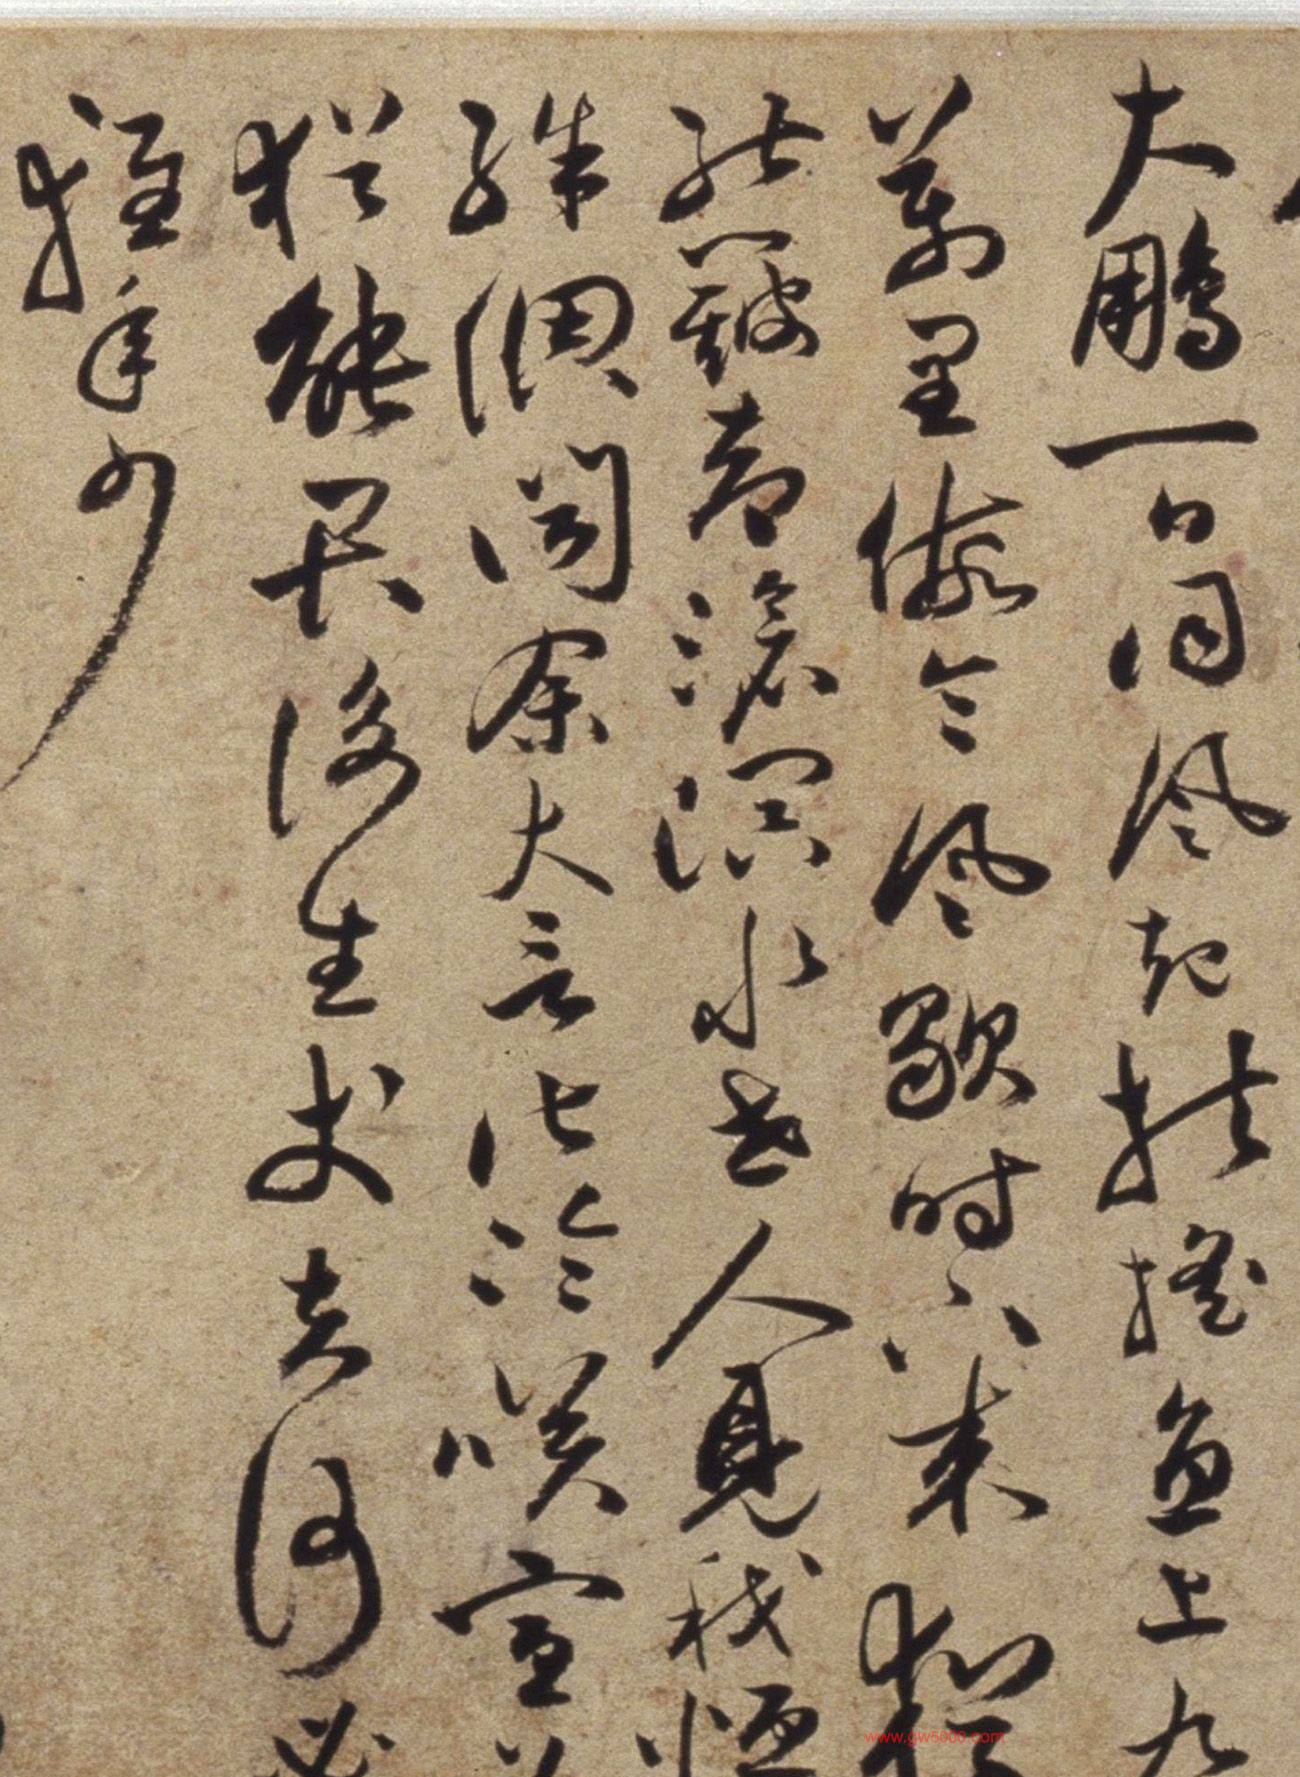 大鵬一日同風起扶搖直上九
萬里假令風歇時下來
能簸却滄溟水世人見我恒
殊調聞余大言皆冷笑宣
猶能畏後生丈夫何必
輕年少
www.gw5000.com